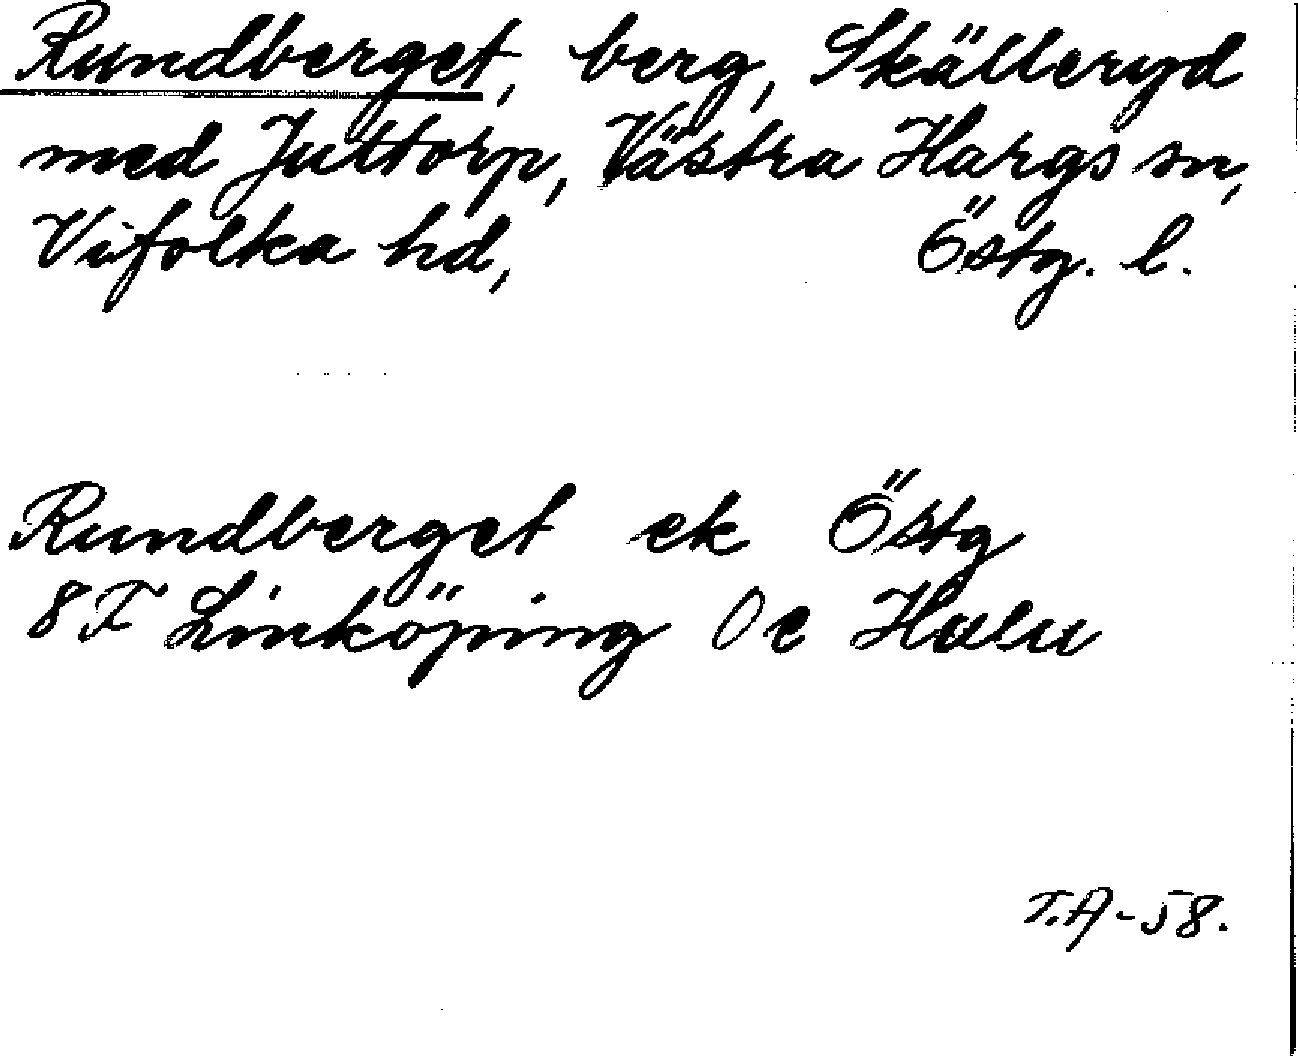 Rundberget, berg, Skälleryd
med Juttorp, Västra Hargs sn,
Vifolka hd, Östg. l.
Rundberget ek Östg
8 F Linköping 0 e Hulu
T.A-58.